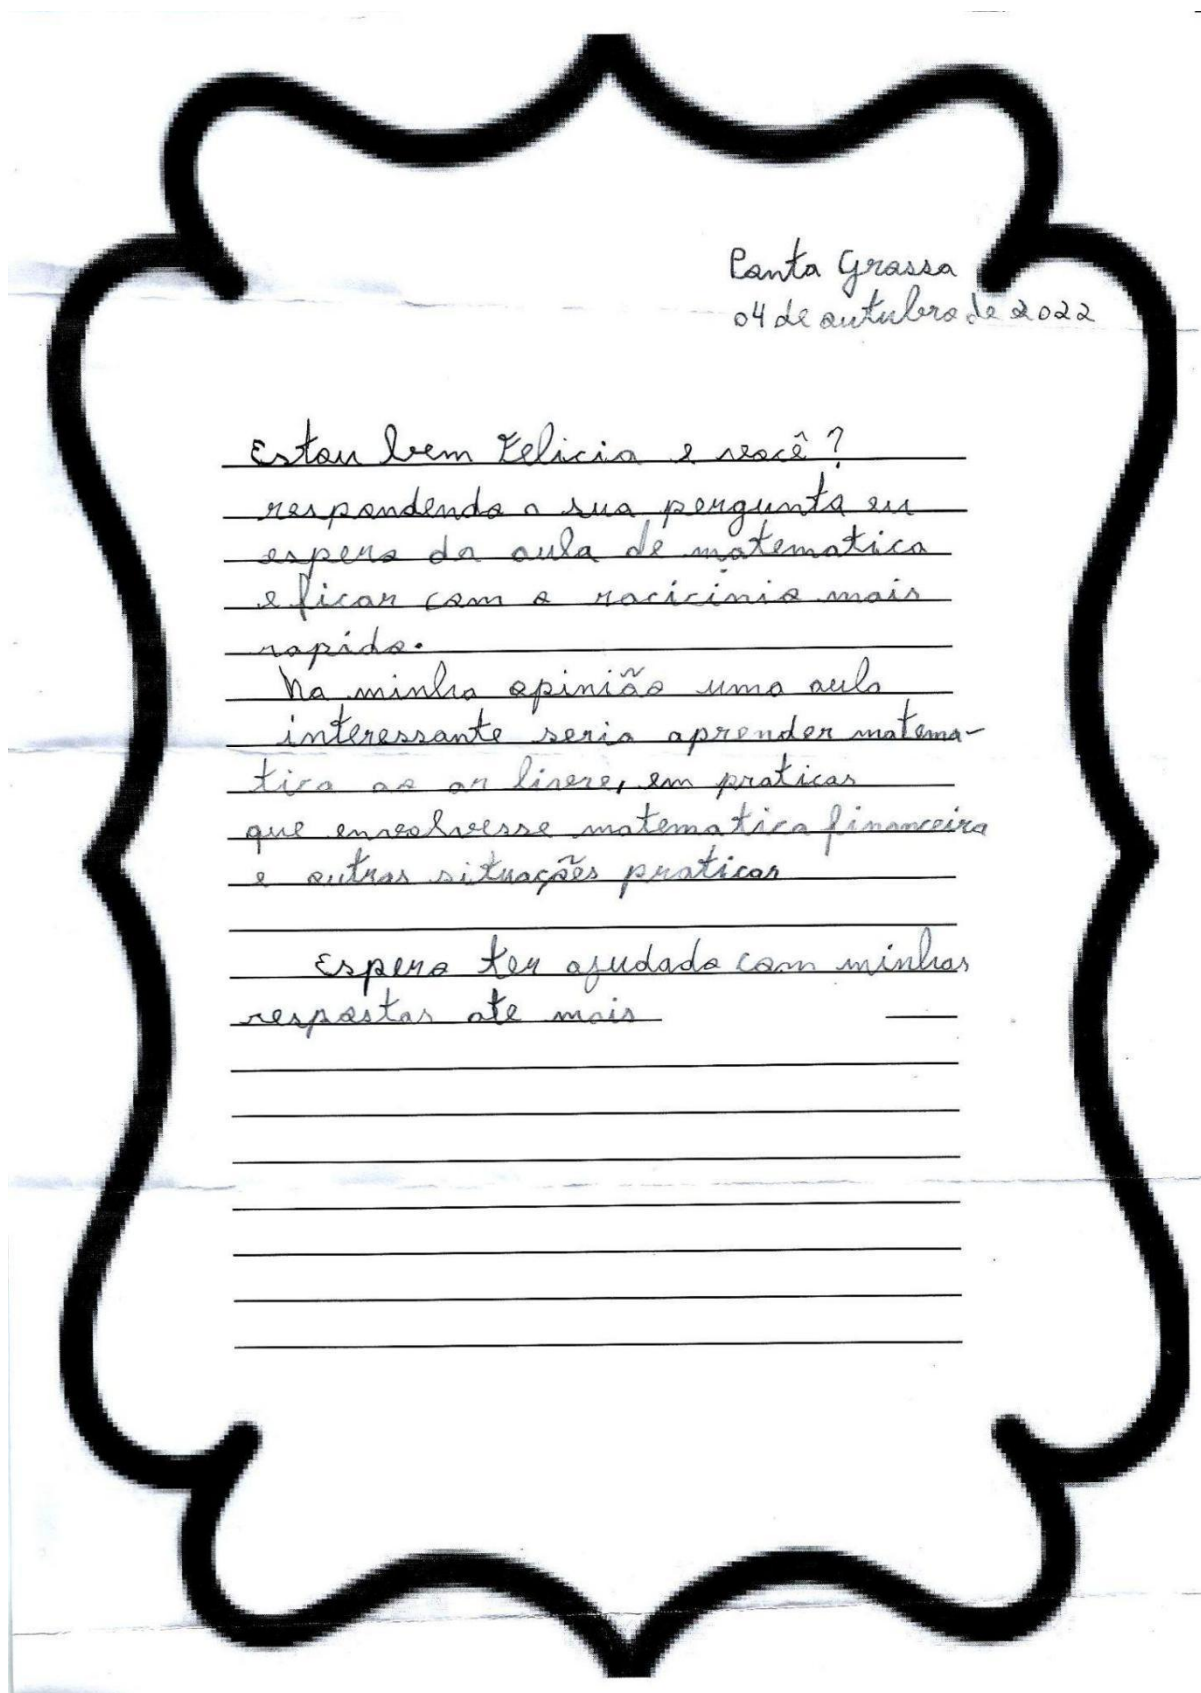 Ponta Grossa
04 de outubro de 2022
Estou bem Felicia e você?
respondendo a sua pergunta eu
espero da aula de matematica
e ficar com o racicinio mais
rapido.
Na minha opinião uma aula
interessante seria aprender matema-
tica ao ar livre, em praticas
que envolvesse matematica financeira
e outras situações praticas
Espero ter ajudado com minhas
respostas ate mais